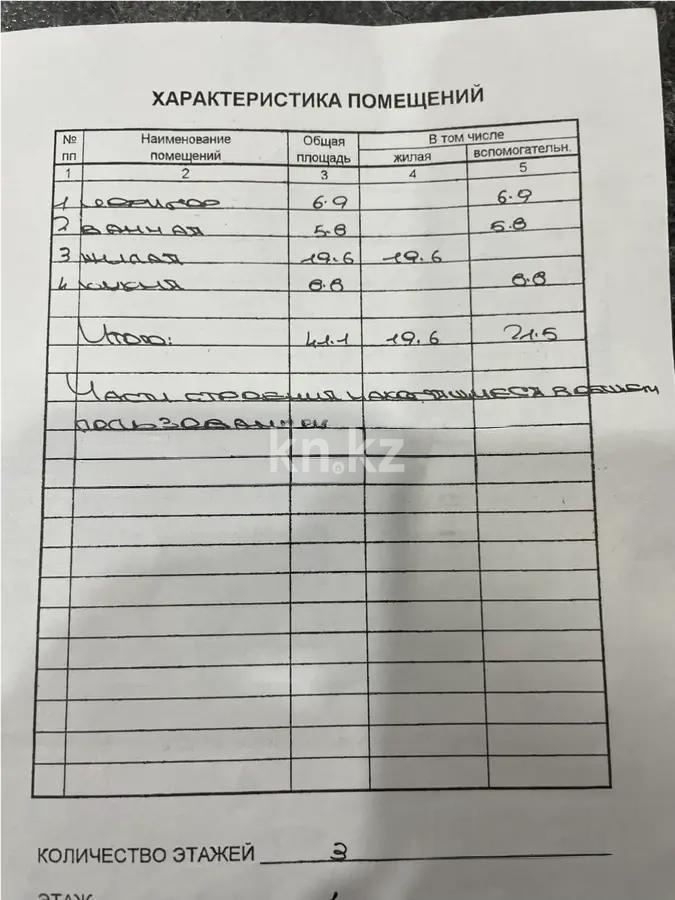 ХАРАКТЕРИСТИКА ПОМЕЩЕНИЙ
№ пп Наименование помещений Общая площадь В том числе
жилая вспомогательн.
1 2 3 4 5
1 коридор 6.9 6.9
2 ванная 5.8 5.8
3 жилая 19.6 19.6
4 кухня 8.8 8.8
Итого: 41.1 19.6 21.5
Части строения находящиеся в общем
пользовании
kn.kz
КОЛИЧЕСТВО ЭТАЖЕЙ 3
ЭТАЖ